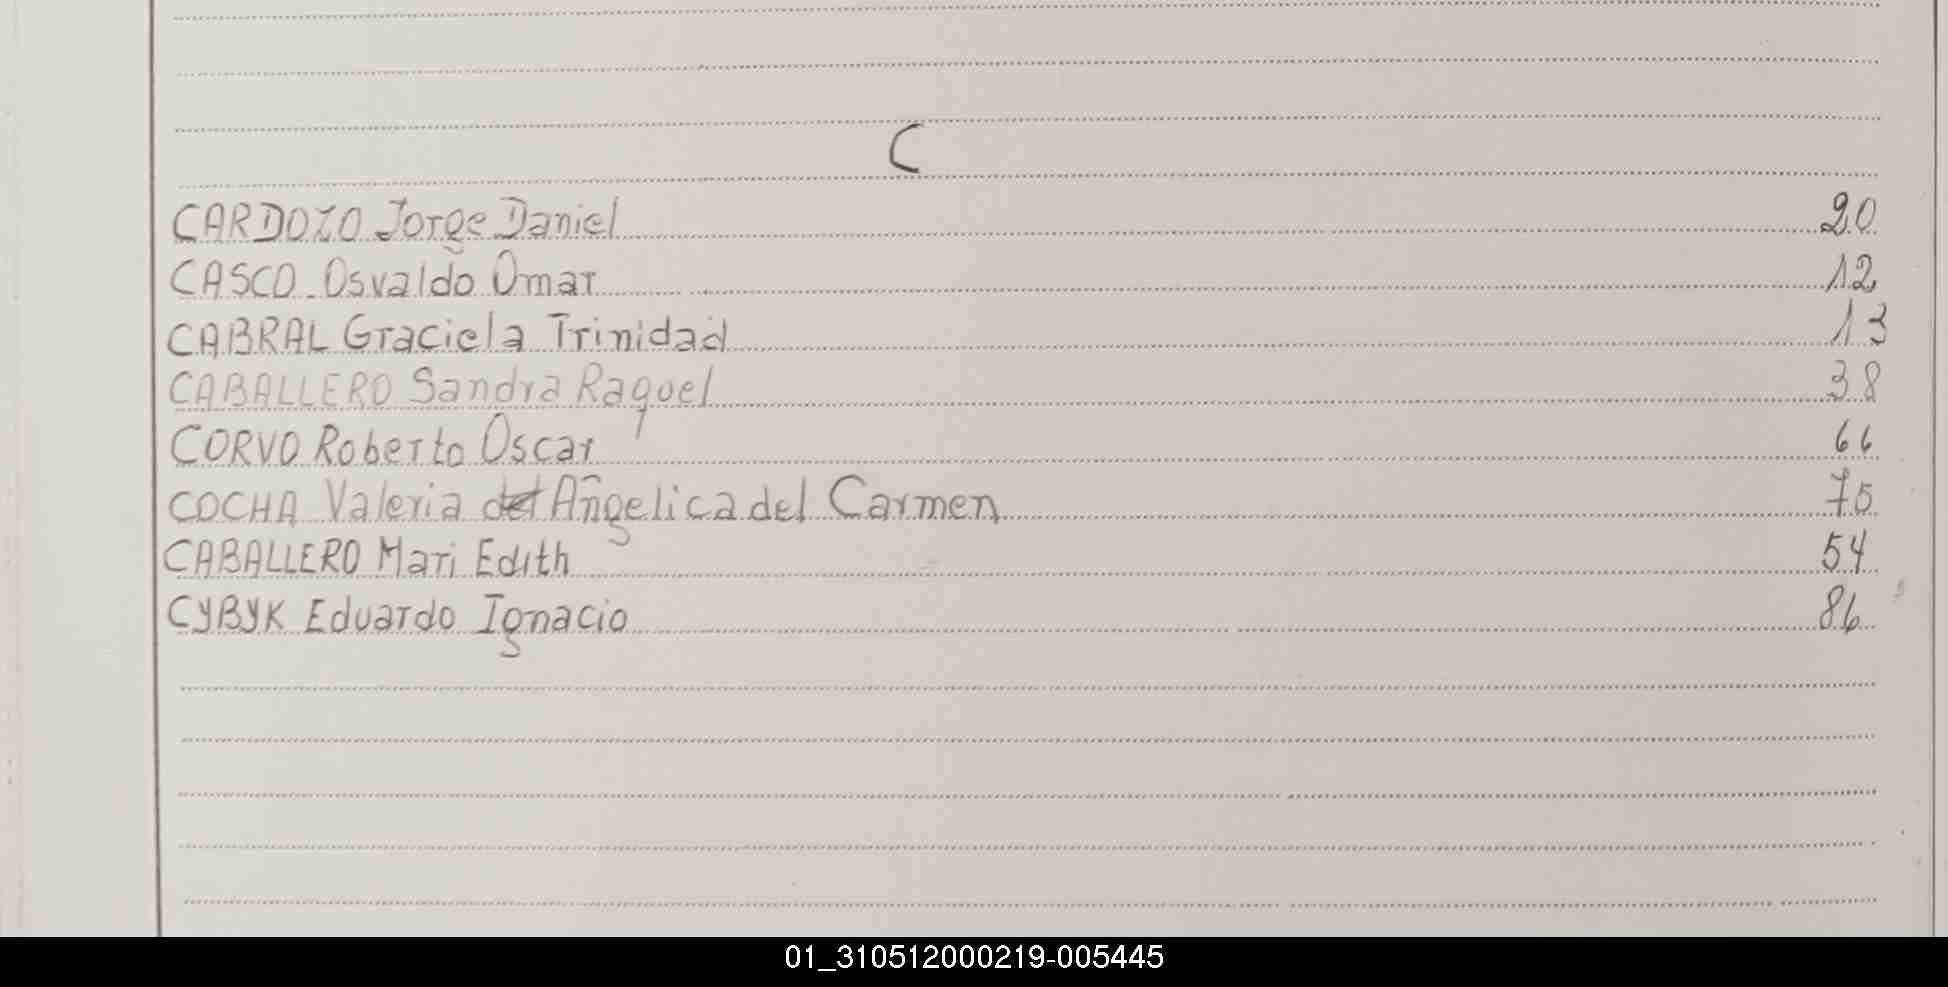 C
CARDOZO Jorge Daniel 20
CASCO Osvaldo Omar 12
CABRAL Graciela Trinidad 13
CABALLERO Sandra Raquel 38
CORVO Roberto Oscar 66
COCHA Valeria del Angelica del Carmen 75
CABALLERO Mari Edith 54
CYBYK Eduardo Ignacio 86
01_310512000219-005445